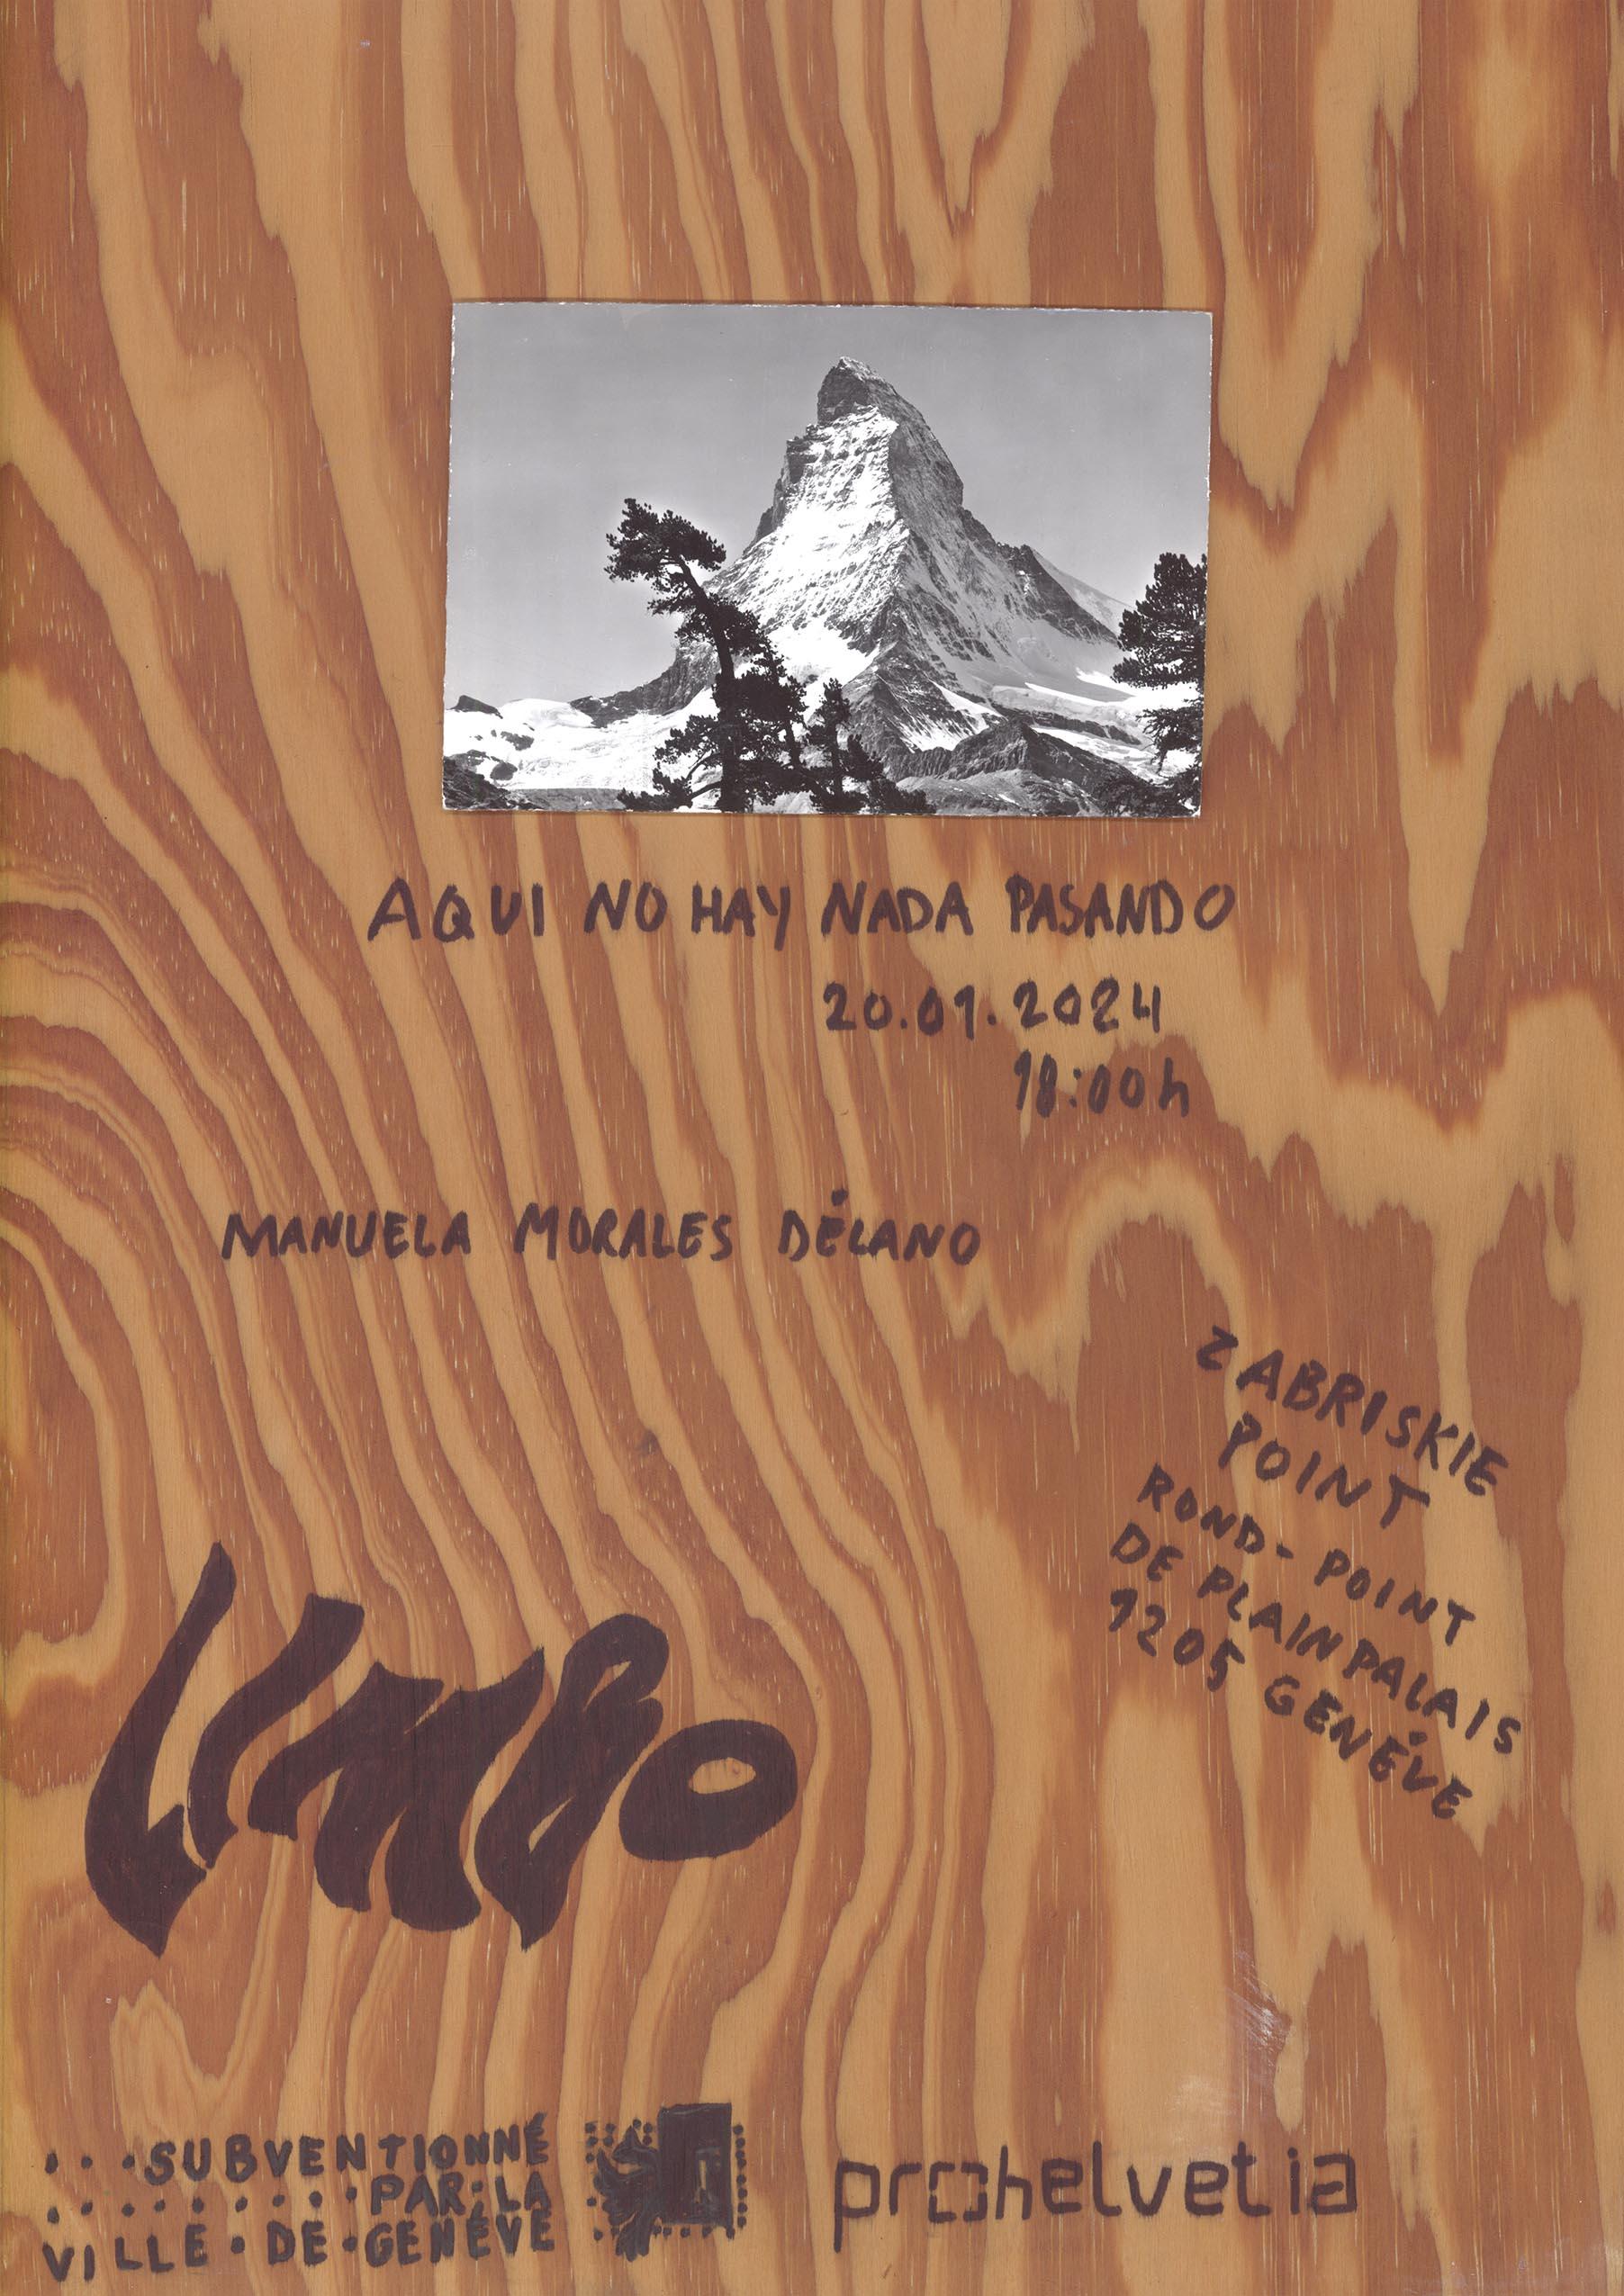 AQUI NO HAY NADA PASANDO
20.01.2024
18:00h
MANUELA MORALES DÉLANO
ZABRISKIE
POINT
ROND-POINT
DE PLAINPALAIS
1205 GENÈVE
LIMBO
...SUBVENTIONNÉ
........PAR·LA
VILLE·DE·GENÈVE
prohelvetia